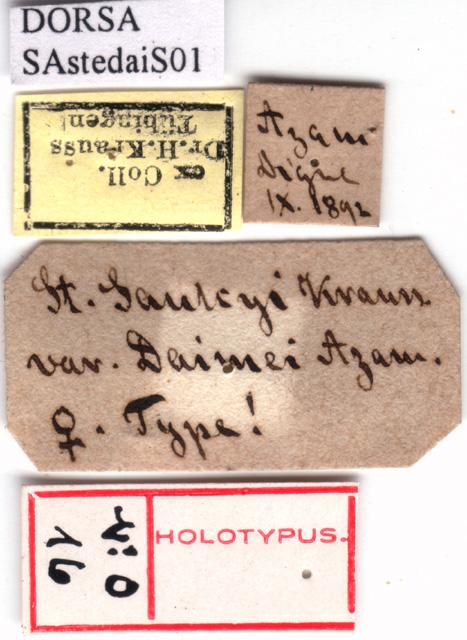 DORSA
SAstedaiS01
ex Coll.
Dr. H. Krauss
Tübingen!
Azam
Digne
IX. 1892
St. Saulcyi Krauss
var. Daimei Azam.
♀. Type!
HOLOTYPUS.